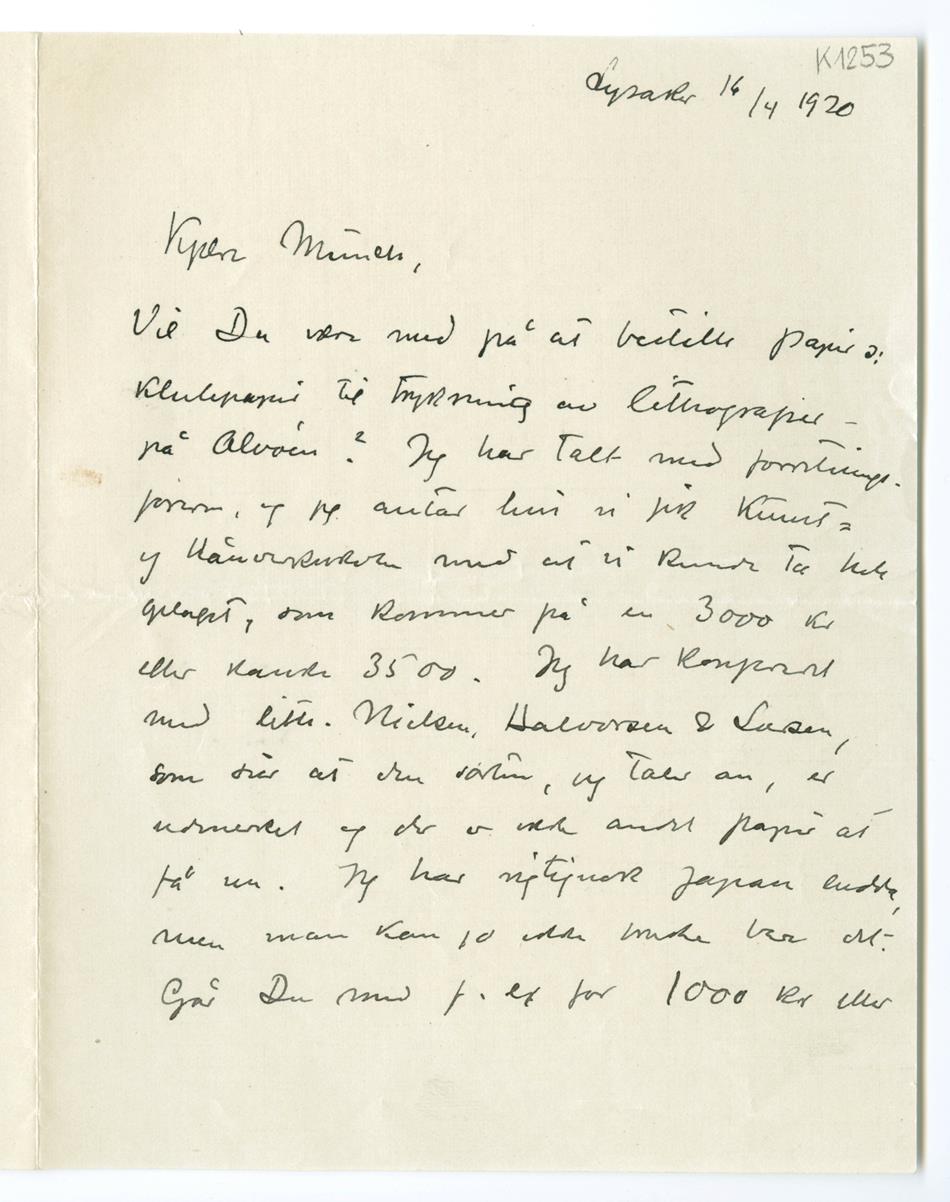 K1253
Lysaker 16/4 1920
Kjære Munch,
Vil Du være med på at bestille papir ɔ:
Klutepapir til trykning av lithografier –
på Alvøen? Jeg har talt med forretnings-
føreren, og jeg antar hvis vi fik Kunst=
og Håndverkskolen med at vi kunde ta hele
oplaget, som kommer på en 3000 kr
eller kanske 3500. Jeg har konferert
med lith. Nielsen, Halvorsen & Larsen,
som sier at den sorten, jeg taler om, er
udmerket og der er ikke andet papir at
få nu. Jeg har rigtignok Japan endda,
men man kan jo ikke bruke bare det.
Går Du med f. ex for 1000 kr eller